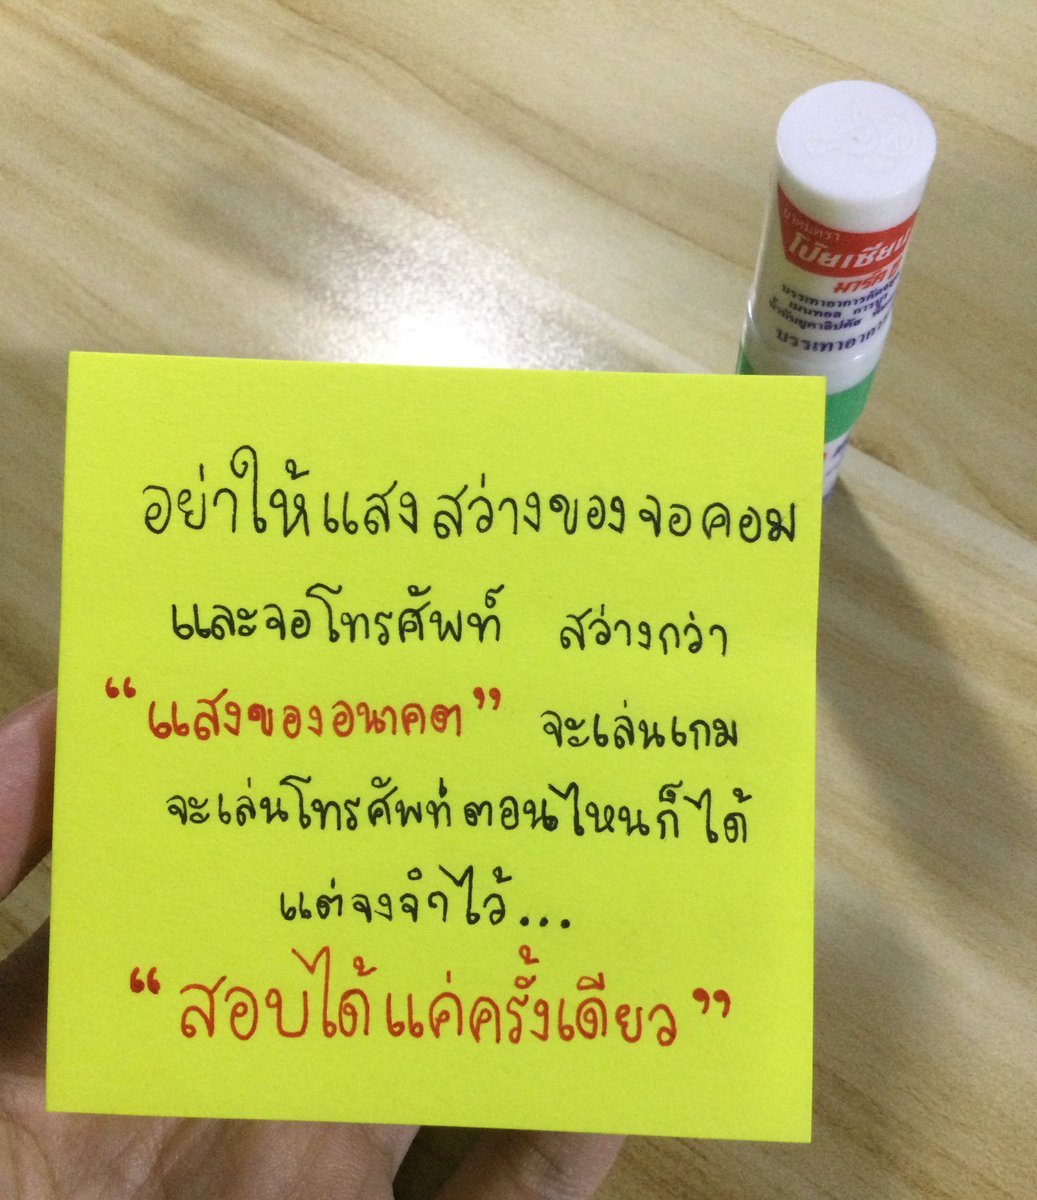 ยาดมตรา
โป๊ยเซียน
มาร์ค
บรรเทาอาการคัดจมูก
เมนทอล การบูร
น้ำมันยูคาลิปตัส
อย่าให้แสงสว่างของจอคอม
และจอโทรศัพท์ สว่างกว่า
“แสงของอนาคต” จะเล่นเกม
จะเล่นโทรศัพท์ตอนไหนก็ได้
แต่จงจำไว้...
“สอบได้แค่ครั้งเดียว”